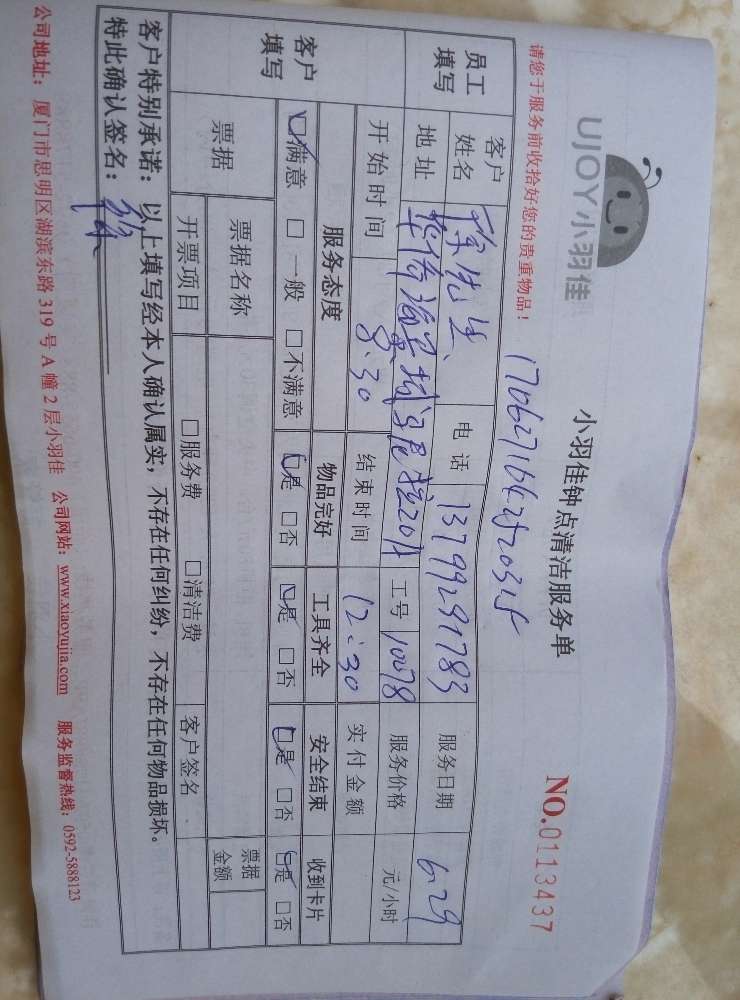 UJOY小羽佳
小羽佳钟点清洁服务单
NO.0113437
请您于服务前收拾好您的贵重物品！
员工填写
客户姓名 陈先生 电话 13799291783 服务日期 6.29
地址 20A 工号 10078 服务价格 元/小时
开始时间 8:30 结束时间 12:30 实付金额
客户填写
服务态度 物品完好 工具齐全 安全结束 收到卡片
☑满意 □一般 □不满意 ☑是 □否 ☑是 □否 ☑是 □否 ☑是 □否
票据 票据名称 票据金额
开票项目 □服务费 □清洁费 客户签名
客户特别承诺：以上填写经本人确认属实，不存在任何纠纷，不存在任何物品损坏。
特此确认签名：
公司地址：厦门市思明区湖滨东路 319 号 A 幢 2 层小羽佳 公司网站：www.xiaoyujia.com 服务监督热线：0592-5888123